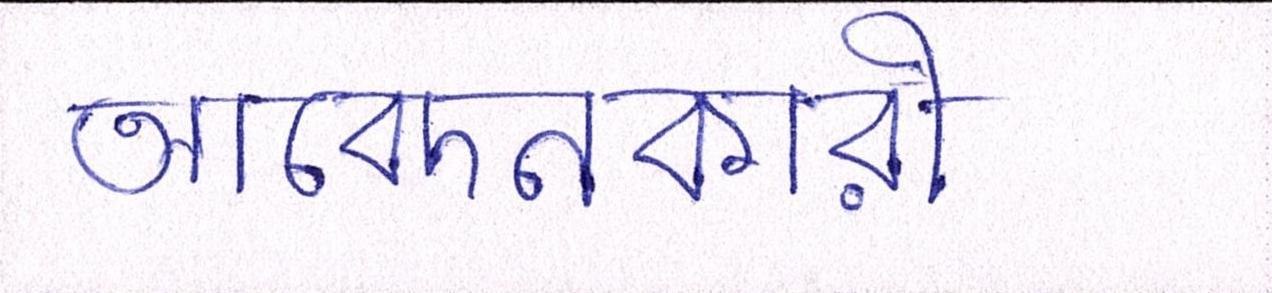 আবেদনকারী